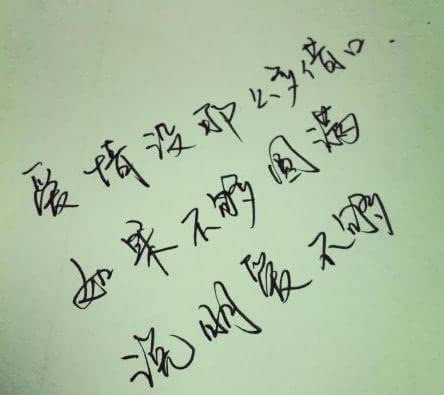 爱情没那么多借口.
如果不够圆满
说明爱不够